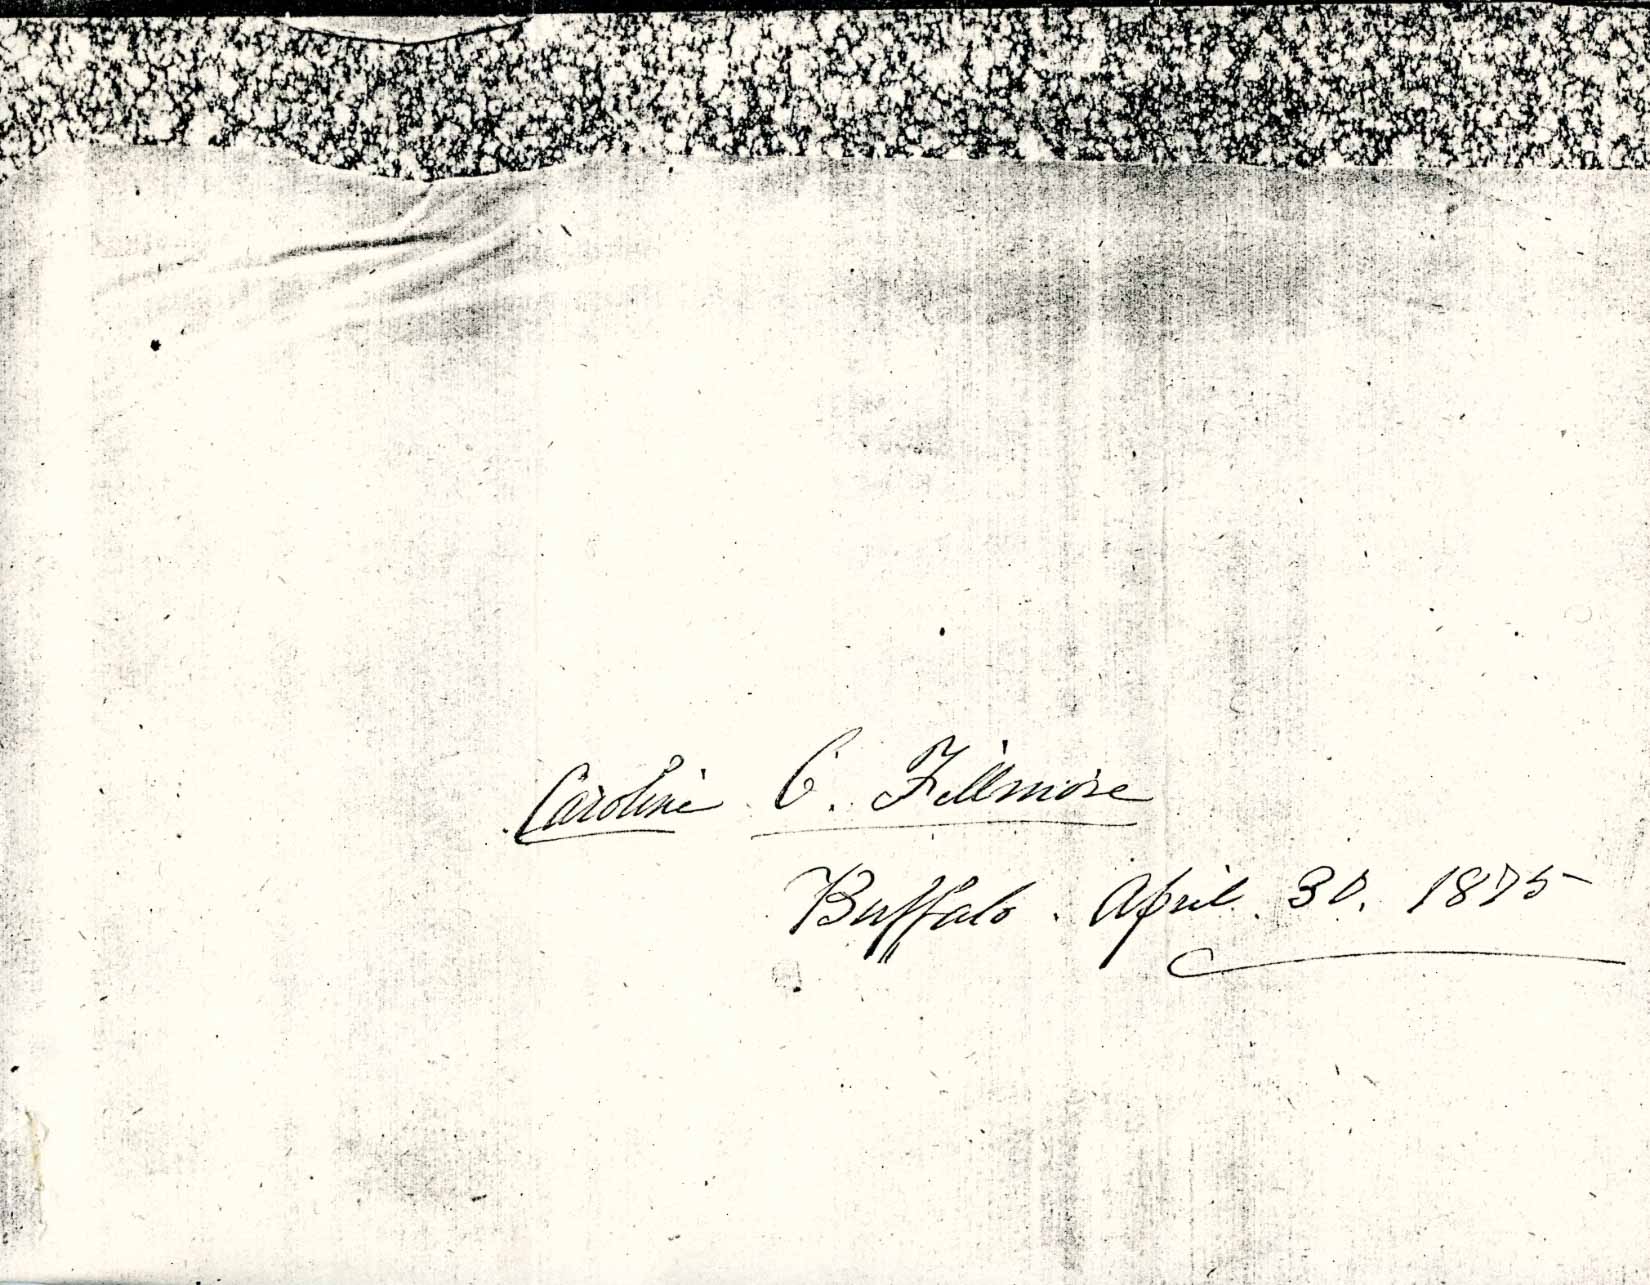 Caroline C. Fillmore
Buffalo. April. 30. 1875